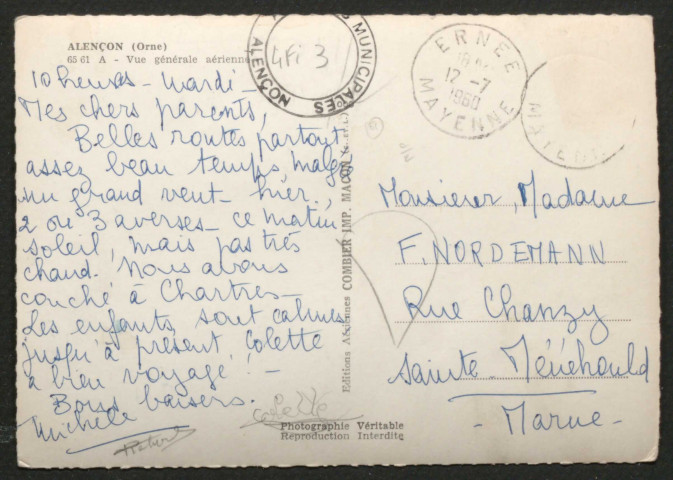 ALENÇON (Orne)
65 61 A - Vue générale aérienne
10 heures - Mardi -
Mes chers parents,
Belles routes partout
assez beau temps malgré
un grand vent - hier,
2 ou 3 averses - ce matin
soleil, mais pas très
chaud. Nous avons
couché à Chartres -
Les enfants sont calmes
jusqu'à présent, Colette
a bien voyagé ! -
Bons baisers.
Michèle
colette
MUNICIPALES
ALENÇON
4Fi 3
ERNEE
12 - 7
1960
MAYENNE
Editions Aériennes COMBIER IMP. MACON
Monsieur, Madame
F. NORDEMANN
Rue Chanzy
Sainte Ménéhould
- Marne -
Photographie Véritable
Reproduction Interdite